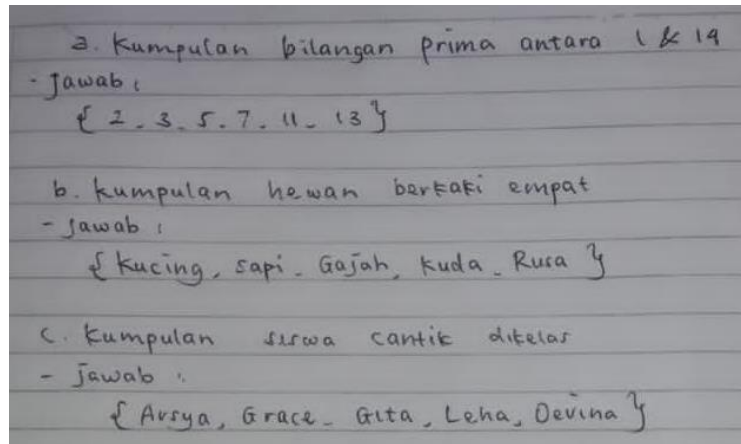 a. Kumpulan bilangan prima antara 1 & 19
- Jawab :
{ 2, 3, 5, 7, 11, 13 }
b. kumpulan hewan berkaki empat
- Jawab :
{ Kucing, sapi, Gajah, Kuda, Rusa }
c. Kumpulan siswa cantik dikelas
- Jawab :
{ Arsya, Grace, Gita, Leha, Devina }